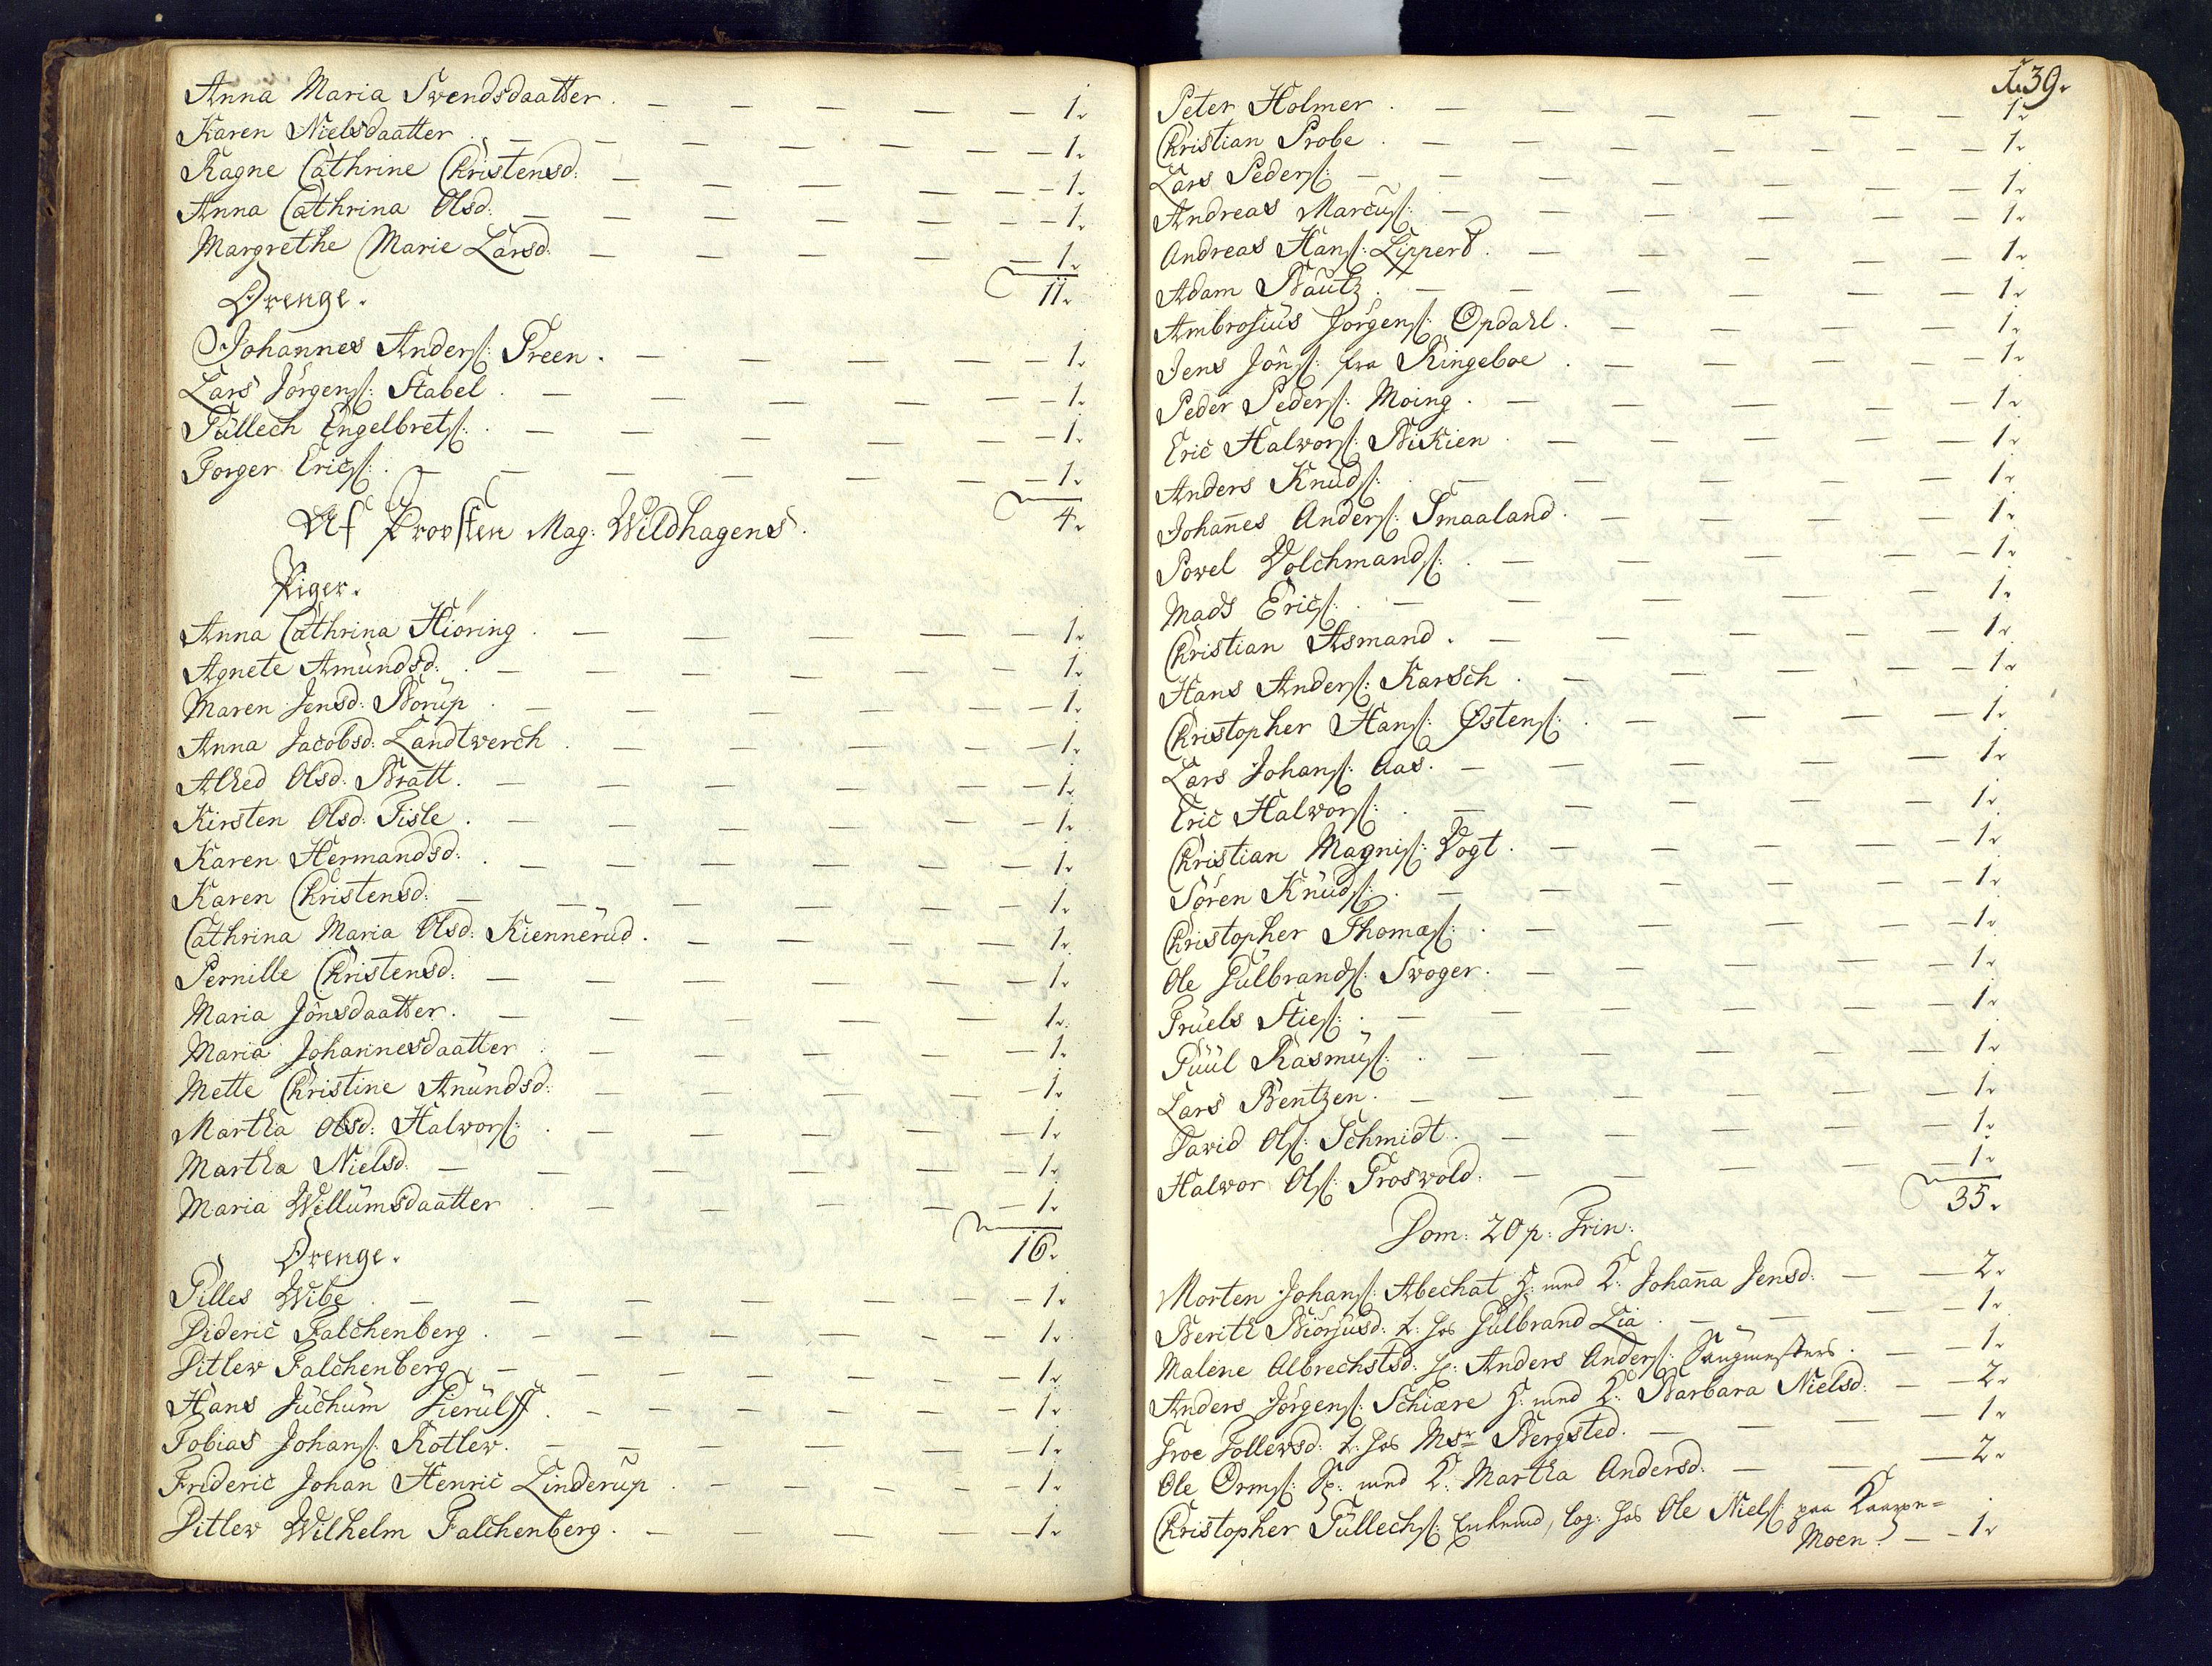 Anna Maria Svendsdaatter. — — — — — 1.
Karen Nielsdaatter. — — — — — — 1.
Ragne Cathrine Christensd: — — — — — — 1.
Anna Cathrina Olsd. — — — — — — 1.
Margrethe Marie Larsd. — — — — — 1.
11.
Drenge.
Johannes Anders: Preen. — — — — — 1.
Lars Jörgens: Stabel. — — — — — — 1.
Tüllech Engelbrets: — — — — — — 1.
Torger Erics: — — — — — — 1.
4.
Af Provsten Mag: Wildhagens.
Piger.
Anna Cathrina Hiöring. — — — — — 1.
Agnete Amündsd: — — — — — — 1.
Maren Jensd: Borüp. — — — — — — 1.
Anna Jacobsd: Landtwerch. — — — — — 1.
Alhed Olsd. Bratt. — — — — — — 1.
Kirsten Olsd. Fisle. — — — — — — 1.
Karen Hermandsd: — — — — — — 1.
Karen Christensd: — — — — — — 1.
Cathrina Maria Olsd: Kiennerüd. — — — — 1.
Pernille Christensd: — — — — — — 1.
Maria Jönsdaatter. — — — — — 1.
Maria Johannesdaatter — — — — — 1.
Mette Christine Anündsd: — — — — — 1.
Martha Olsd: Halvors: — — — — — 1.
Martha Nielsd. — — — — — — 1.
Maria Willümsdaatter. — — — — — 1.
16.
Drenge.
Gilles Wibe. — — — — — — 1.
Dideric Falchenberg. — — — — — — 1.
Ditlew Falchenberg. — — — — — — 1.
Hans Jüchüm Pierülff. — — — — — 1.
Tobias Johans: Rotlew. — — — — — — 1.
Frideric Johan Henric Linderüp. — — — — 1.
Ditlew Wilhelm Falchenberg. — — — — 1.
139.
Peter Holmer. — — — — — — 1.
Christian Probe. — — — — — — 1.
Lars Peders: — — — — — — 1.
Andreas Marcus: — — — — — — 1.
Andreas Hans: Lippert. — — — — — 1.
Adam Bautz. — — — — — — 1.
Ambrosius Jörgens: Opdahl. — — — — 1.
Jens Jöns: fra Ringeboe. — — — — 1.
Peder Peders: Moing. — — — — — 1.
Eric Halvors: Bikien. — — — — — 1.
Anders Knüds: — — — — — 1.
Johannes Anders: Smaaland. — — — — 1.
Powel Volchmands: — — — — — 1.
Mads Erics: — — — — — 1.
Christian Asmand. — — — — — 1.
Hans Anders: Karsch. — — — — — 1.
Christopher Hans: Østens: — — — — 1.
Lars Johans: Aas. — — — — — 1.
Eric Halvors: — — — — — 1.
Christian Magnis: Vogt. — — — — — 1.
Sören Knüds: — — — — — 1.
Christopher Thomæs: — — — — — 1.
Ole Gülbrands: Svoger. — — — — — 1.
Trüels Sties: — — — — — — 1.
Püül Rasmüs: — — — — — 1.
Lars Bentzen. — — — — — — 1.
David Ols: Schmidt. — — — — — 1.
Halvor Ols: Groswold. — — — — 1.
35.
Dom: 20 p: Trin:
Morten Johans: Abechat H: med K: Johanna Jensd: — — 2.
Berith Biörjüsd: t: hos Gülbrand Lia. — — — — 1.
Malene Albrechtsd: H: Anders Anders: Saugmesters. — — 1.
Anders Jörgens: Schiære H: med K: Barbara Nielsd: — — 2.
Groe Tollewsd: t: hos Msr Bergsted. — — — — 1.
Ole Orms: Sp: med K: Martha Andersd. — — — 2.
Christopher Tüllechs: Enkemd, log: hos Ole Niels: paa
Moen. — — 1.